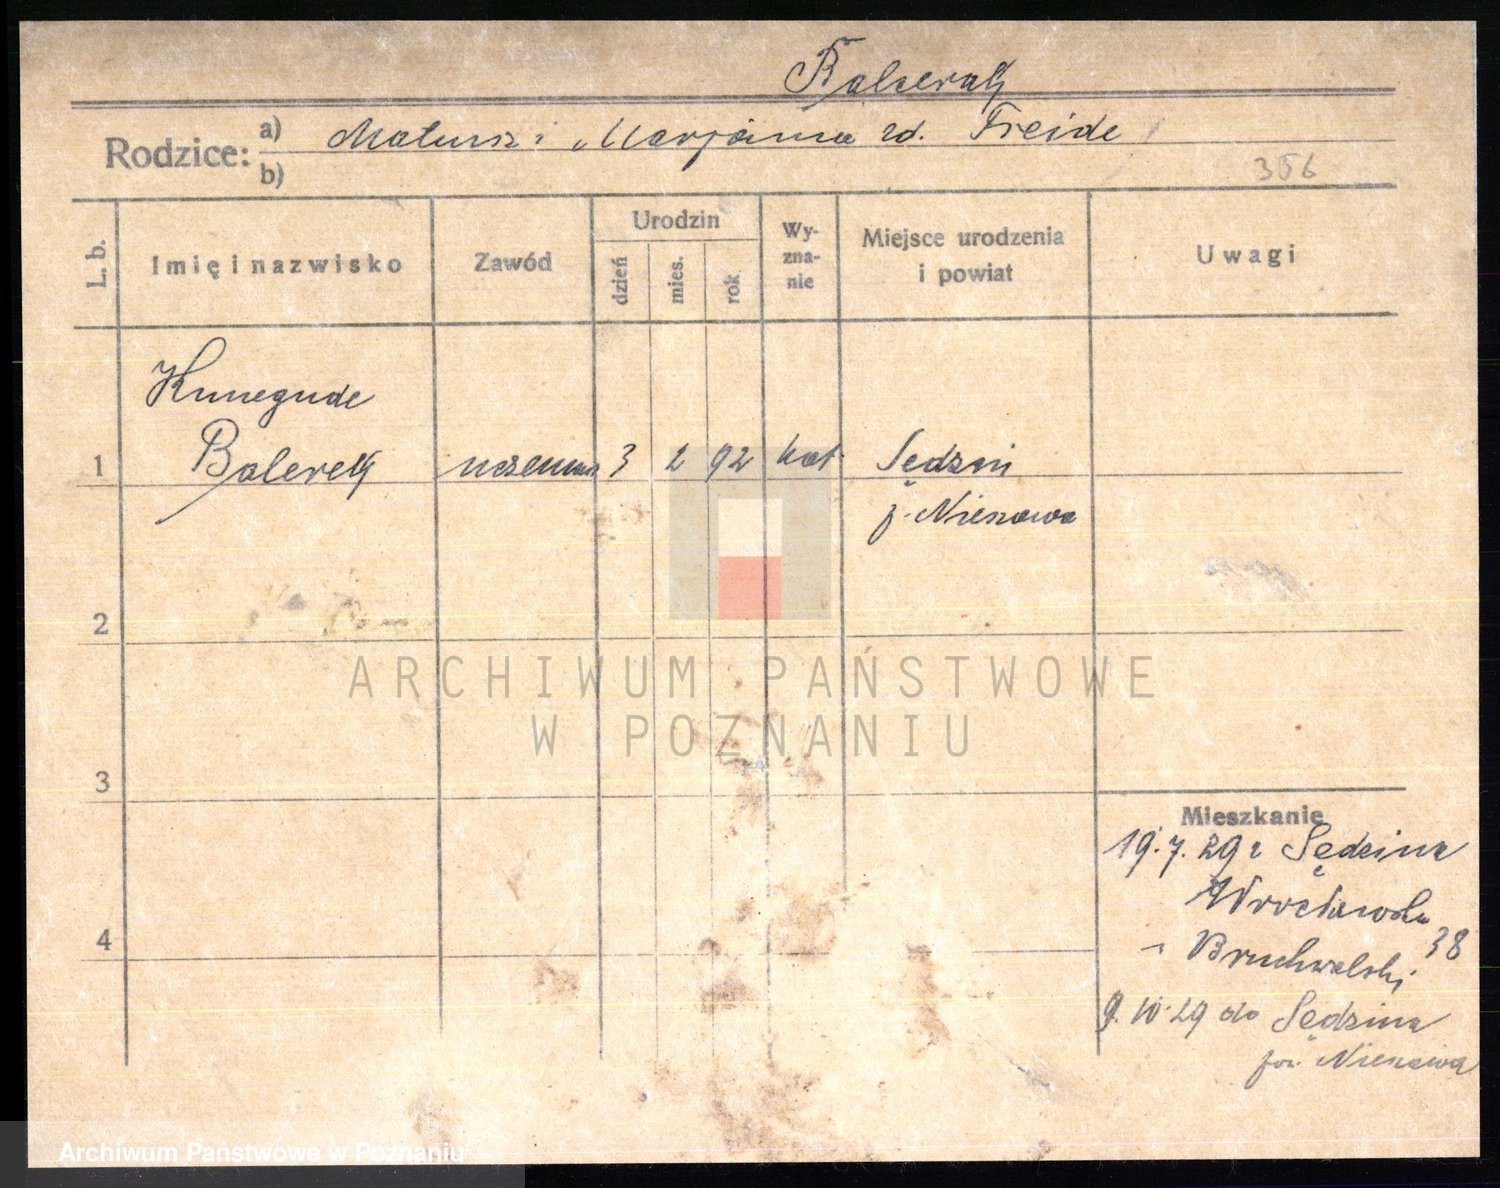 Balcerak
Rodzice: a) Mateusz i Marjanna zd. Freide
b)
356
L. b. Imię i nazwisko Zawód Urodzin dzień mies. rok Wy-zna-nie Miejsce urodzenia i powiat Uwagi
Kunegunde
1 Balcerek 3 2 92 kat. Sędzin
p. Nieszawa
2
ARCHIWUM PAŃSTWOWE
W POZNANIU
3
Mieszkanie
19.7.29 z Sędzina
Wrocławska 38
Bruchwalski
4
9.10.29 do Sędzina
pow. Nieszawa
Archiwum Państwowe w Poznaniu